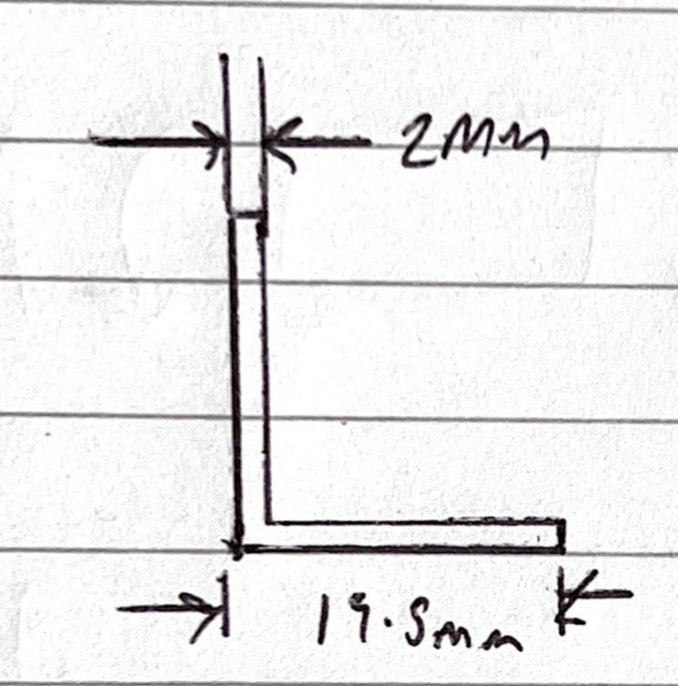 2mm
19.5mm